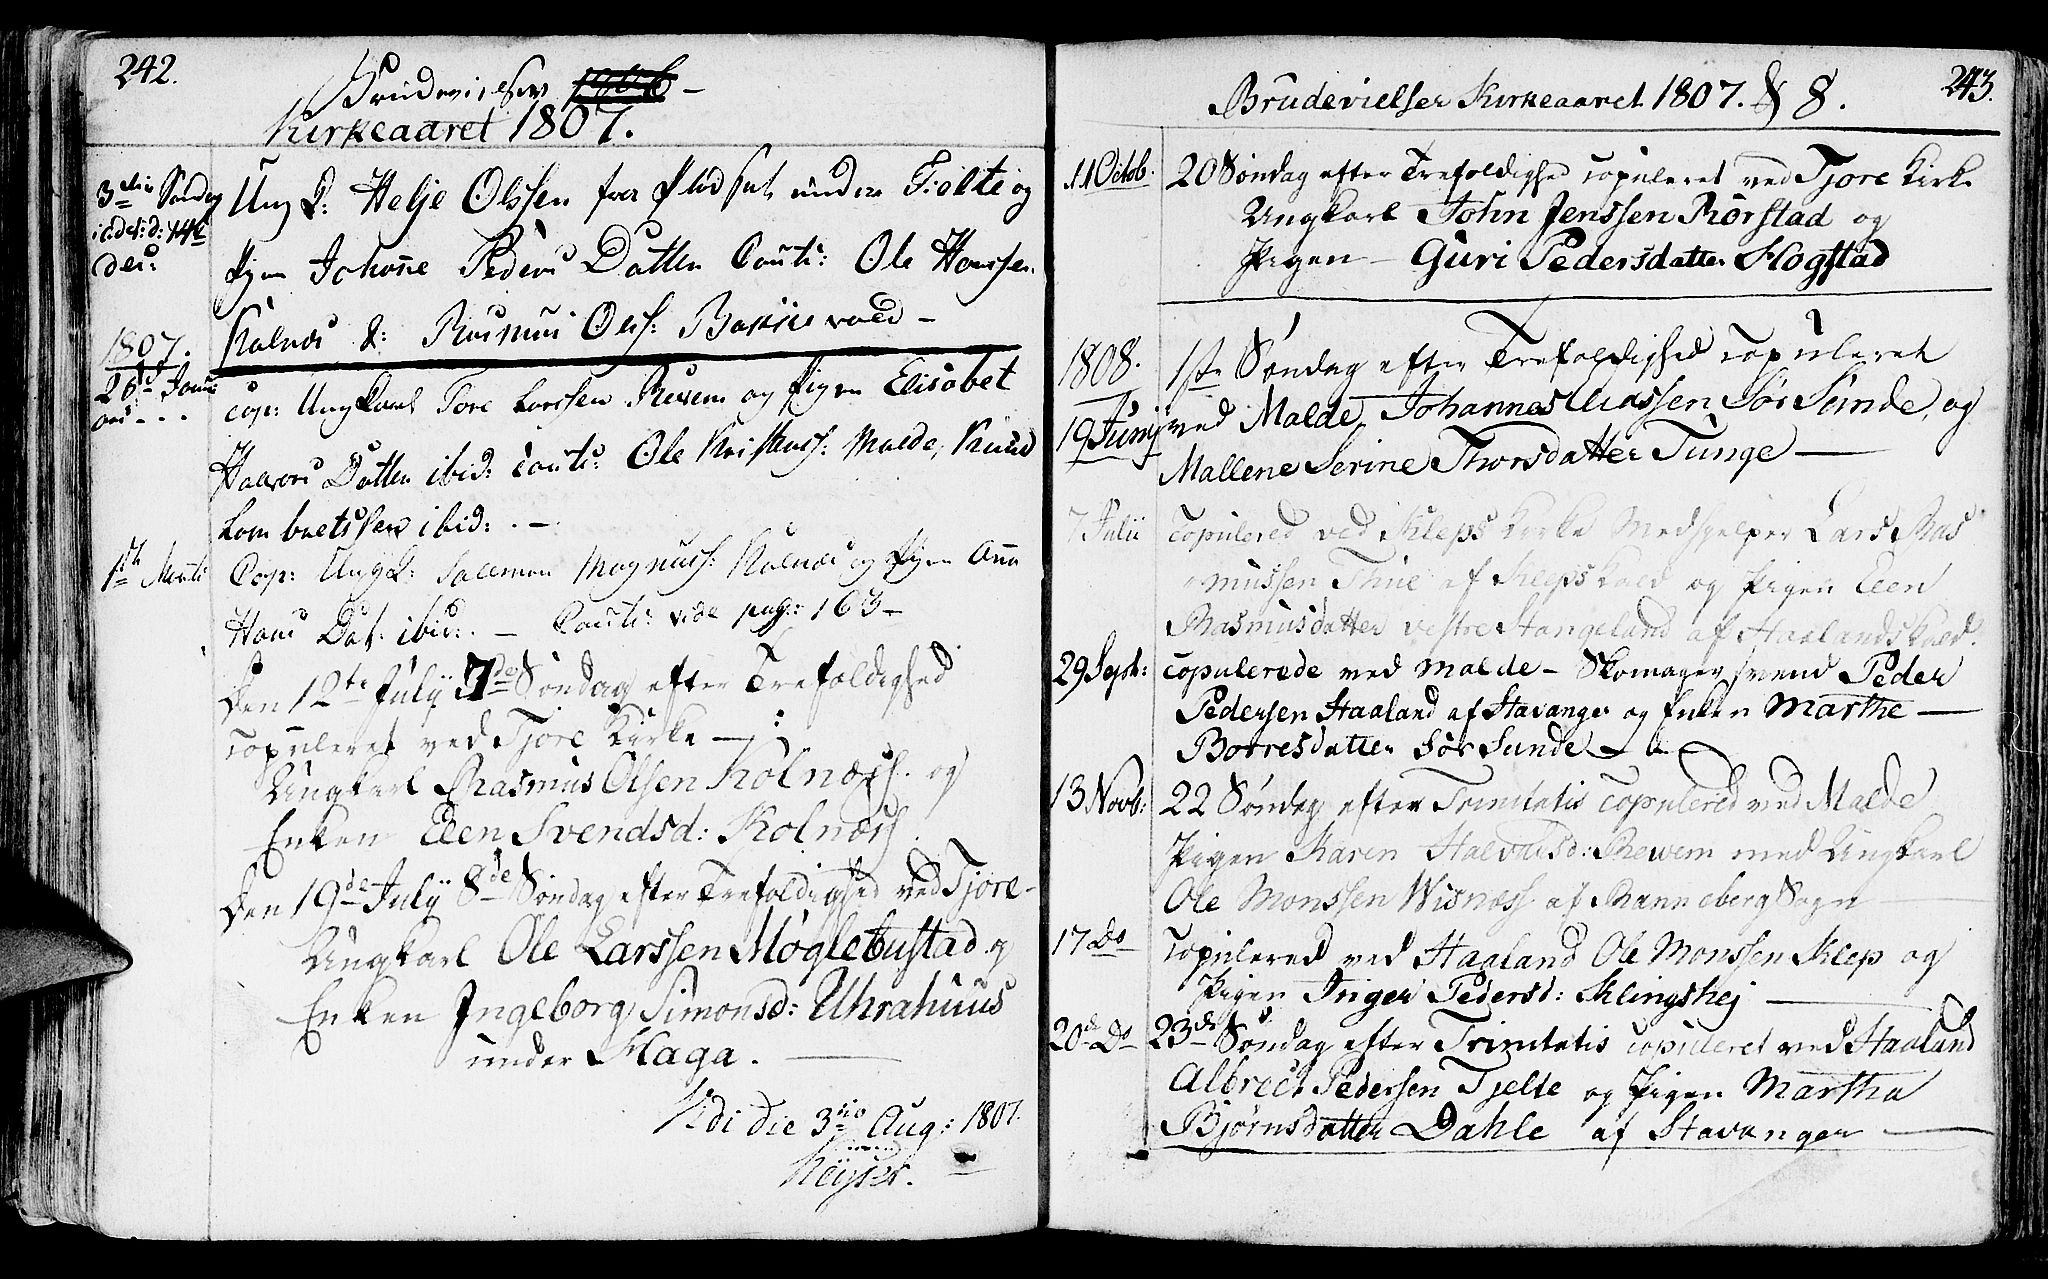 242.
Brudevielser 1806 -
Kirkeaaret 1807.
3die Søndag
i adv: d: 14de
dec:
Ung K: Helje Olssen fra Pladset under Tielte og
Pigen Johanne Peders Datter Cauti: Ole Hanssen
Kolnæs & Rasmus Ols: Bakkevold -
1807.
26de Janu
ari - - -
cop: Ungkarl Tore Larssen Revem og Pigen Elisabet
Halvors Datter ibid: Cauti: Ole Kristians: Malde, Knud
Lambretssen ibid: . -
1ste Marti
Cop: Ung K: Salemon Magnuss: Kolnæs og Pigen Anna
Hans Dat: ibid: . - Cauti: vide pag: 163 -
Den 12te Julÿ 7de Søndag efter Trefoldighed
copuleret ved Tjore Kirke - :
Ungkarl Rasmus Olsen Kolnæss. og
Enken Elen Svendsd: Kolnæss.
Den 19de Julÿ 8de Søndag efter Trefoldighed ved Tjore -
Ungkarl Ole Larssen Møglebustad og
Enken Ingeborg Simonsd: Uhrahuus
under Haga.
Vidi die 3tio Aug: 1807.
Keyser.
243.
Brudevielser Kirkeaaret 1807. & 8.
11 Octob.
20 Søndag efter Trefoldighed copuleret ved Tjore Kirke
Ungkarl John Jenssen Rørstad og
Pigen - Guri Pedersdatter Hogstad
1808.
19 Junij
1ste Søndag efter Trefoldighed copuleret
ved Malde, Johannes Classen Sør Sunde, og
Mallene Serine Thorsdatter Tunge
7 Julii
copulered ved Kleps Kirke Medhjelper Lars Ras
mussen Thue af Kleps Kald og Pigen Elen
Rasmusdatter vestre Stangeland af Haalands Kald.
29 Sept:
copulerede ved Malde - Skomager svend Peder
Pedersen Haaland af Stavanger og Enken Marthe -
Borresdatter Sør Sunde
13 Novb:
22 Søndag efter Trinitatis copulered ved Malde
Pigen Karen Halvorsd: Rewem med Ungkarl
Ole Monssen Wisnæss af Ranneberg Sogn
17 Do
copulered ved Haaland Ole Monssen Klep og
Pigen Inger Pedersd: Klingshej
20de Do
23de Søndag efter Trinitatis copuleret ved Haaland
Albrect Pedersen Tjelte og Pigen Martha
Bjørnsdatter Dahle af Stavanger